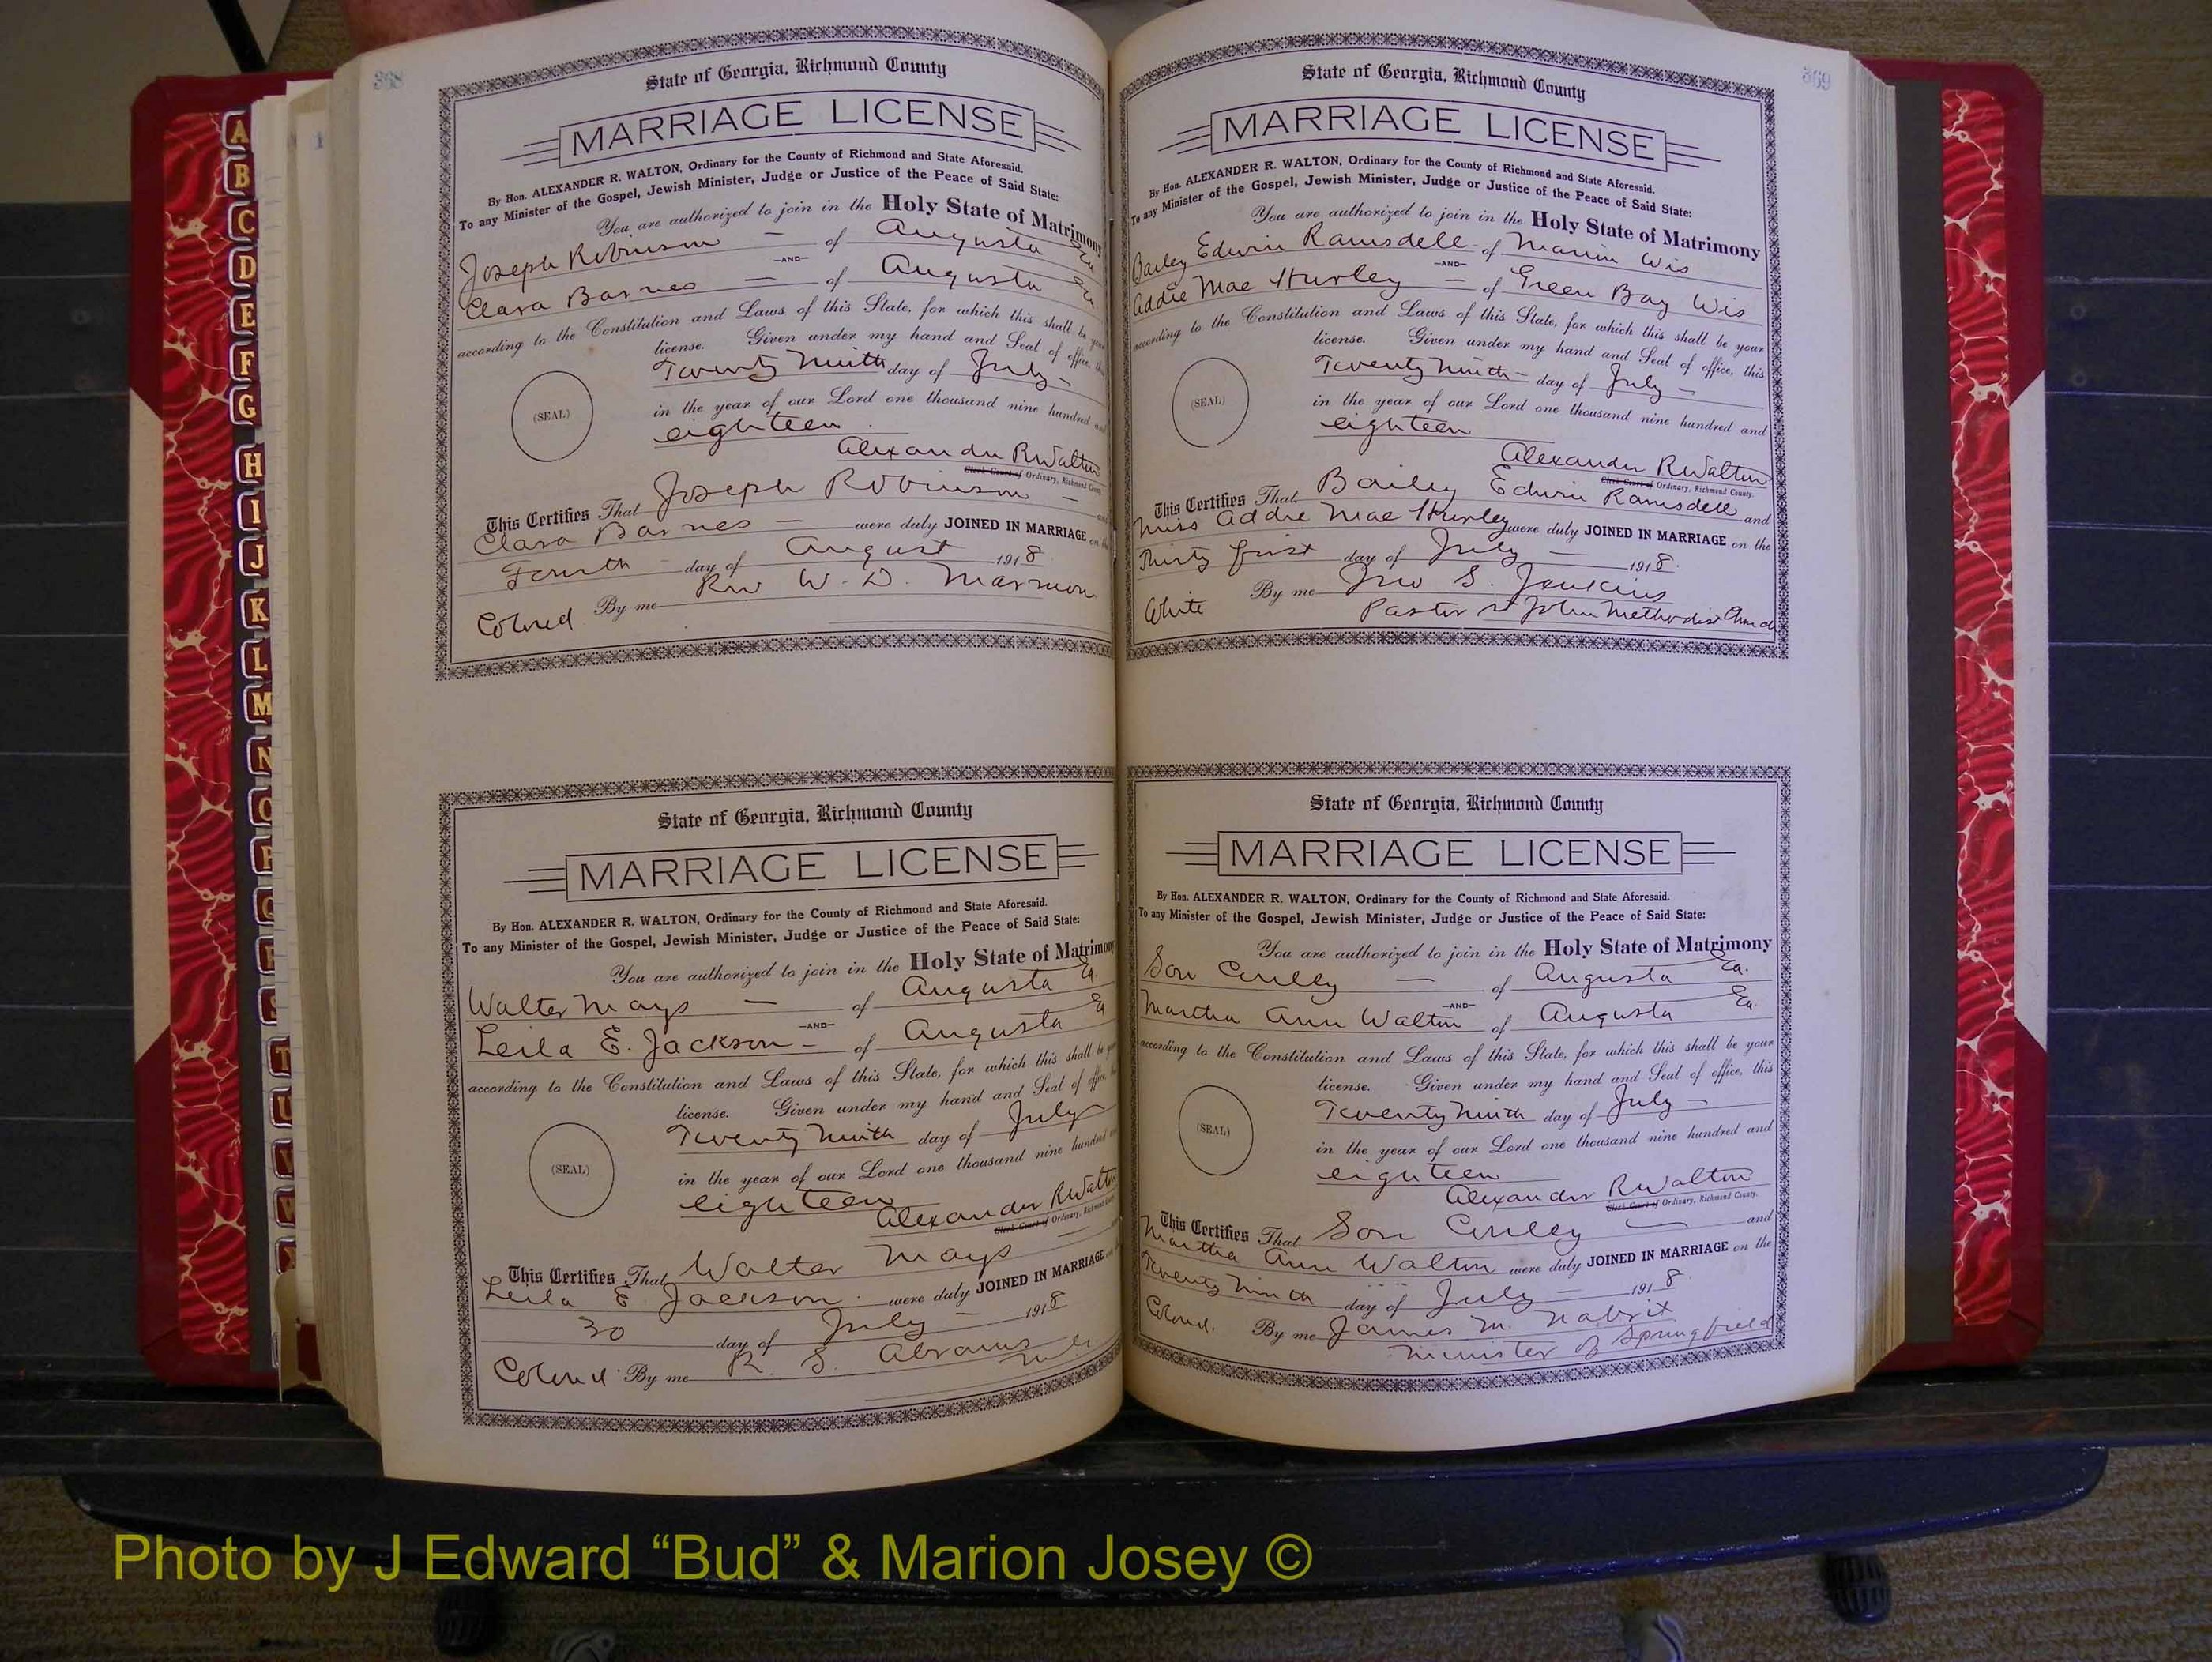 368
State of Georgia, Richmond County
MARRIAGE LICENSE
By Hon. ALEXANDER R. WALTON, Ordinary for the County of Richmond and State Aforesaid.
To any Minister of the Gospel, Jewish Minister, Judge or Justice of the Peace of Said State:
You are authorized to join in the Holy State of Matrimony
Joseph Robinson — of Augusta Ga.
—AND—
Clara Barnes — of Augusta Ga.
according to the Constitution and Laws of this State, for which this shall be your
license. Given under my hand and Seal of office, this
Twenty Ninth day of July —
(SEAL)
in the year of our Lord one thousand nine hundred and
eighteen
Alexander R Walton
Clerk Court of Ordinary, Richmond County.
This Certifies That Joseph Robinson — and
Clara Barnes — were duly JOINED IN MARRIAGE on the
Fourth day of August 1918
Colored By me Rev W. D.
State of Georgia, Richmond County
MARRIAGE LICENSE
By Hon. ALEXANDER R. WALTON, Ordinary for the County of Richmond and State Aforesaid.
To any Minister of the Gospel, Jewish Minister, Judge or Justice of the Peace of Said State:
You are authorized to join in the Holy State of Matrimony
Walter Mays — of Augusta Ga.
—AND—
Leila E. Jackson — of Augusta Ga
according to the Constitution and Laws of this State, for which this shall be your
license. Given under my hand and Seal of office, this
Twenty Ninth day of July
(SEAL)
in the year of our Lord one thousand nine hundred and
eighteen
Alexander R Walton
Clerk Court of Ordinary, Richmond County.
This Certifies That Walter Mays —
Leila E Jackson were duly JOINED IN MARRIAGE on the
30 day of July — 1918
Colored By me R. S. Abrams
369
State of Georgia, Richmond County
MARRIAGE LICENSE
By Hon. ALEXANDER R. WALTON, Ordinary for the County of Richmond and State Aforesaid.
To any Minister of the Gospel, Jewish Minister, Judge or Justice of the Peace of Said State:
You are authorized to join in the Holy State of Matrimony
Bailey Edwin Ramsdell of Wis
—AND—
Addie Mae Hurley — of Green Bay Wis
according to the Constitution and Laws of this State, for which this shall be your
license. Given under my hand and Seal of office, this
Twenty Ninth — day of July —
(SEAL)
in the year of our Lord one thousand nine hundred and
eighteen
Alexander R Walton
Clerk Court of Ordinary, Richmond County.
This Certifies That Bailey Edwin Ramsdell and
Miss Addie Mae Hurley were duly JOINED IN MARRIAGE on the
Thirty first day of July — 1918.
By me Jno S. Jenkins
White Pastor St John Methodist Church
State of Georgia, Richmond County
MARRIAGE LICENSE
By Hon. ALEXANDER R. WALTON, Ordinary for the County of Richmond and State Aforesaid.
To any Minister of the Gospel, Jewish Minister, Judge or Justice of the Peace of Said State:
You are authorized to join in the Holy State of Matrimony
Son Curley — of Augusta Ga.
—AND—
Martha Ann Walton of Augusta Ga.
according to the Constitution and Laws of this State, for which this shall be your
license. Given under my hand and Seal of office, this
Twenty Ninth day of July —
(SEAL)
in the year of our Lord one thousand nine hundred and
eighteen
Alexander R Walton
Clerk Court of Ordinary, Richmond County.
This Certifies That Son Curley — and
Martha Ann Walton were duly JOINED IN MARRIAGE on the
Twenty Ninth day of July — 1918.
Colored. By me James M. Nabrit
Minister of Springfield
A
B
C
D
E
F
G
H
I
J
K
L
M
N
O
P
Q
R
S
T
U
V
W
Photo by J Edward “Bud” & Marion Josey ©